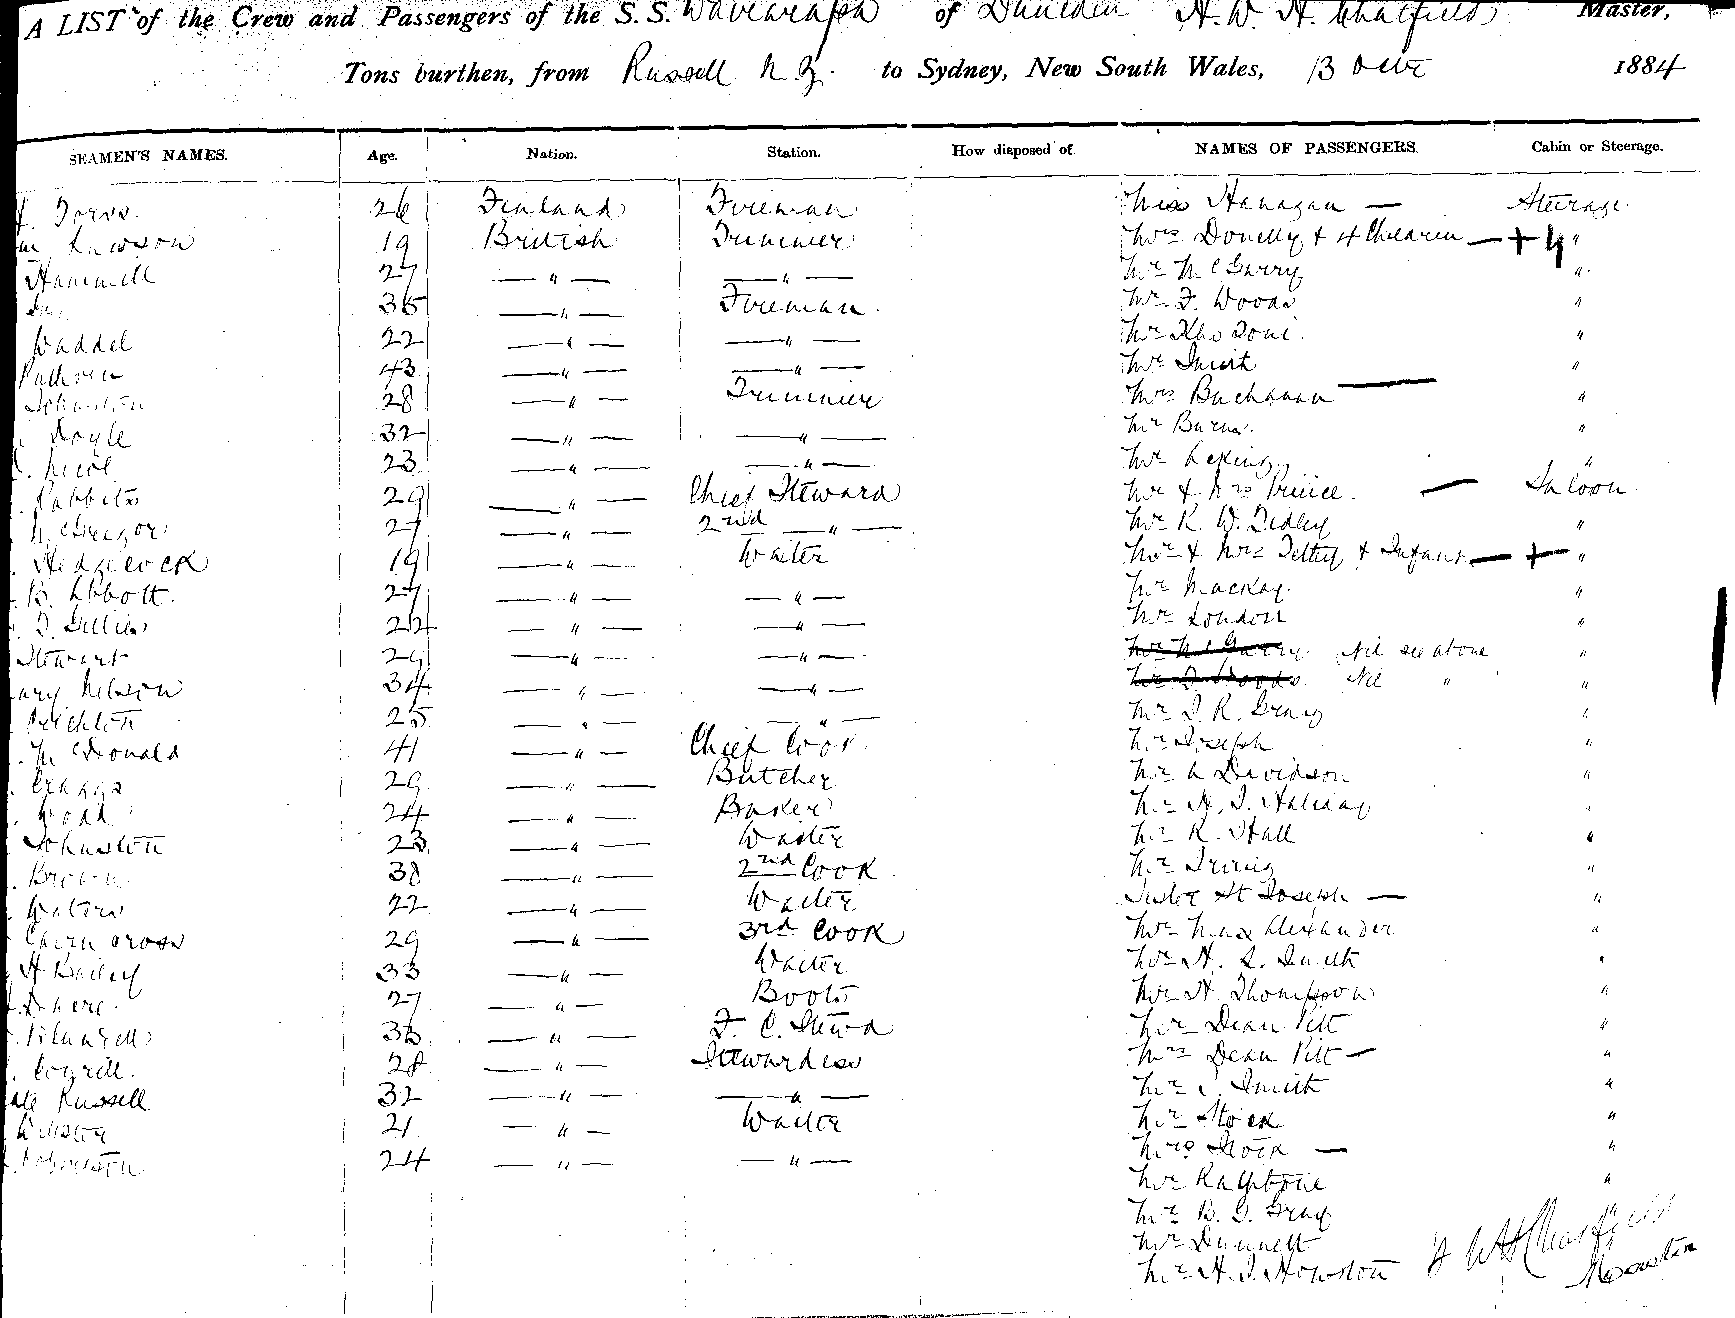 A LIST of the Crew and Passengers of the S. S. Wairarapa of Dunedin H. W. H. Chatfield Master,
Tons burthen, from Russell N Z. to Sydney, New South Wales, 13 Octr 1884
SEAMEN'S NAMES. Age. Nation. Station. How disposed of. NAMES OF PASSENGERS. Cabin or Steerage.
26 Finland Fireman Miss Hanagan — Steerage
Lawson 19 British Trimmer Mrs Donelly & 4 Children — + 4 "
Hammill 27 — " — — " — Mr McGarry "
35 — " — Fireman Mr F. Woods "
Waddel 22 — " — — " — Mr Thos "
43 — " — — " — Mr Smith "
Johnston 28 — " — Trimmer Mrs Buchanan — "
Doyle 32 — " — — " — Mr Burns "
Nicol 23 — " — — " — Mr "
Rabbits 29 — " — Chief Steward Mr & Mrs Prince — Saloon
McGregor 27 — " — 2nd — " — Mr R. W. Tidley "
Hedgecock 19 — " — Waiter Mr & Mrs & Infant — + "
B. Abbott 27 — " — — " — Mr Mackay "
Gillies 22 — " — — " — Mr London "
Stewart 29 — " — — " — Mr McGarry Nil see above "
Nelson 34 — " — — " — Mr F. Woods Nil " "
Crichton 25 — " — — " — Mr J. R. Gray "
McDonald 41 — " — Chief Cook Mr Joseph "
Craggs 29 — " — Butcher Mr A Davidson "
Wood 24 — " — Baker Mr H. J. Haliday "
Johnston 23 — " — Waiter Mr R. Hall "
Brown 38 — " — 2nd Cook Mr Irving "
Waters 22 — " — Waiter Sister St Joseph — "
Cairncross 29 — " — 3rd Cook Mr Max Alexander "
H Bailey 33 — " — Waiter Mr H. S. Smith "
27 — " — Boots Mr H. Thompson "
36 — " — F. C. Stewd Mr Dean Pitt "
28 — " — Stewardess Mrs Dean Pitt — "
Russell 32 — " — — " — Mr Smith "
Webster 21 — " — Waiter Mr Stock "
Johnston 24 — " — — " — Mrs Stock — "
Mr Rathbone "
Mr B. J. Gray "
Mr Dunnett
Mr H. J. Howston H W H Chatfield
Master